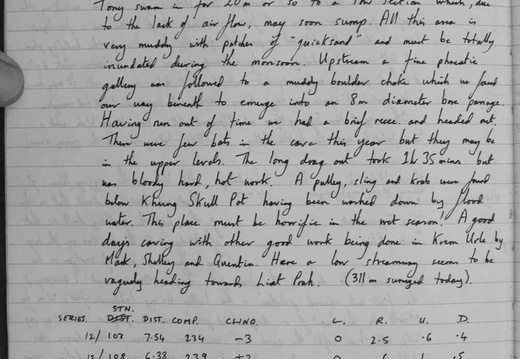 Tony swam in for 20m or so to a low section which, due
to the lack of air flow, may soon sump. All this area is
very muddy with patches of "quicksand" and must be totally
inundated during the monsoon. Upstream a fine phreatic
gallery was followed to a muddy boulder choke which we found
our way beneath to emerge into an 8m diameter bore passage.
Having run out of time we had a brief recce. and headed out.
There were few bats in the cave this year but they may be
in the upper levels. The long drag out took 1h 35 mins but
was bloody hard, hot work. A pulley, sling and krab were found
below Khung Skull Pot having been washed down by flood
water. This place must be horrific in the wet season! A good
days caving with other good work being done in Krem Urle by
Mark, Shelley and Quentin. Here a low streamway seems to be
vaguely heading towards Liat Prah. (311m surveyed today).
STN.
SERIES DIST. DIST. COMP. CLINO. L. R. U. D.
12/ 107 7.54 234 -3 0 2.5 .6 .4
12/ 108 6.38 239 .5